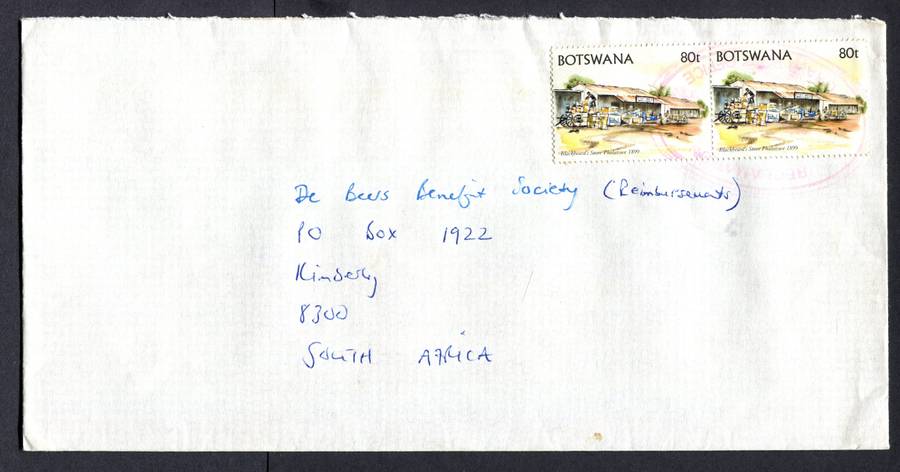 BOTSWANA 80t BOTSWANA 80t
Blackbeard's Store Phalatswe 1899 Blackbeard's Store Phalatswe 1899
De Beers Benefit Society (Reimbursements)
PO Box 1922
Kimberly
8300
SOUTH AFRICA